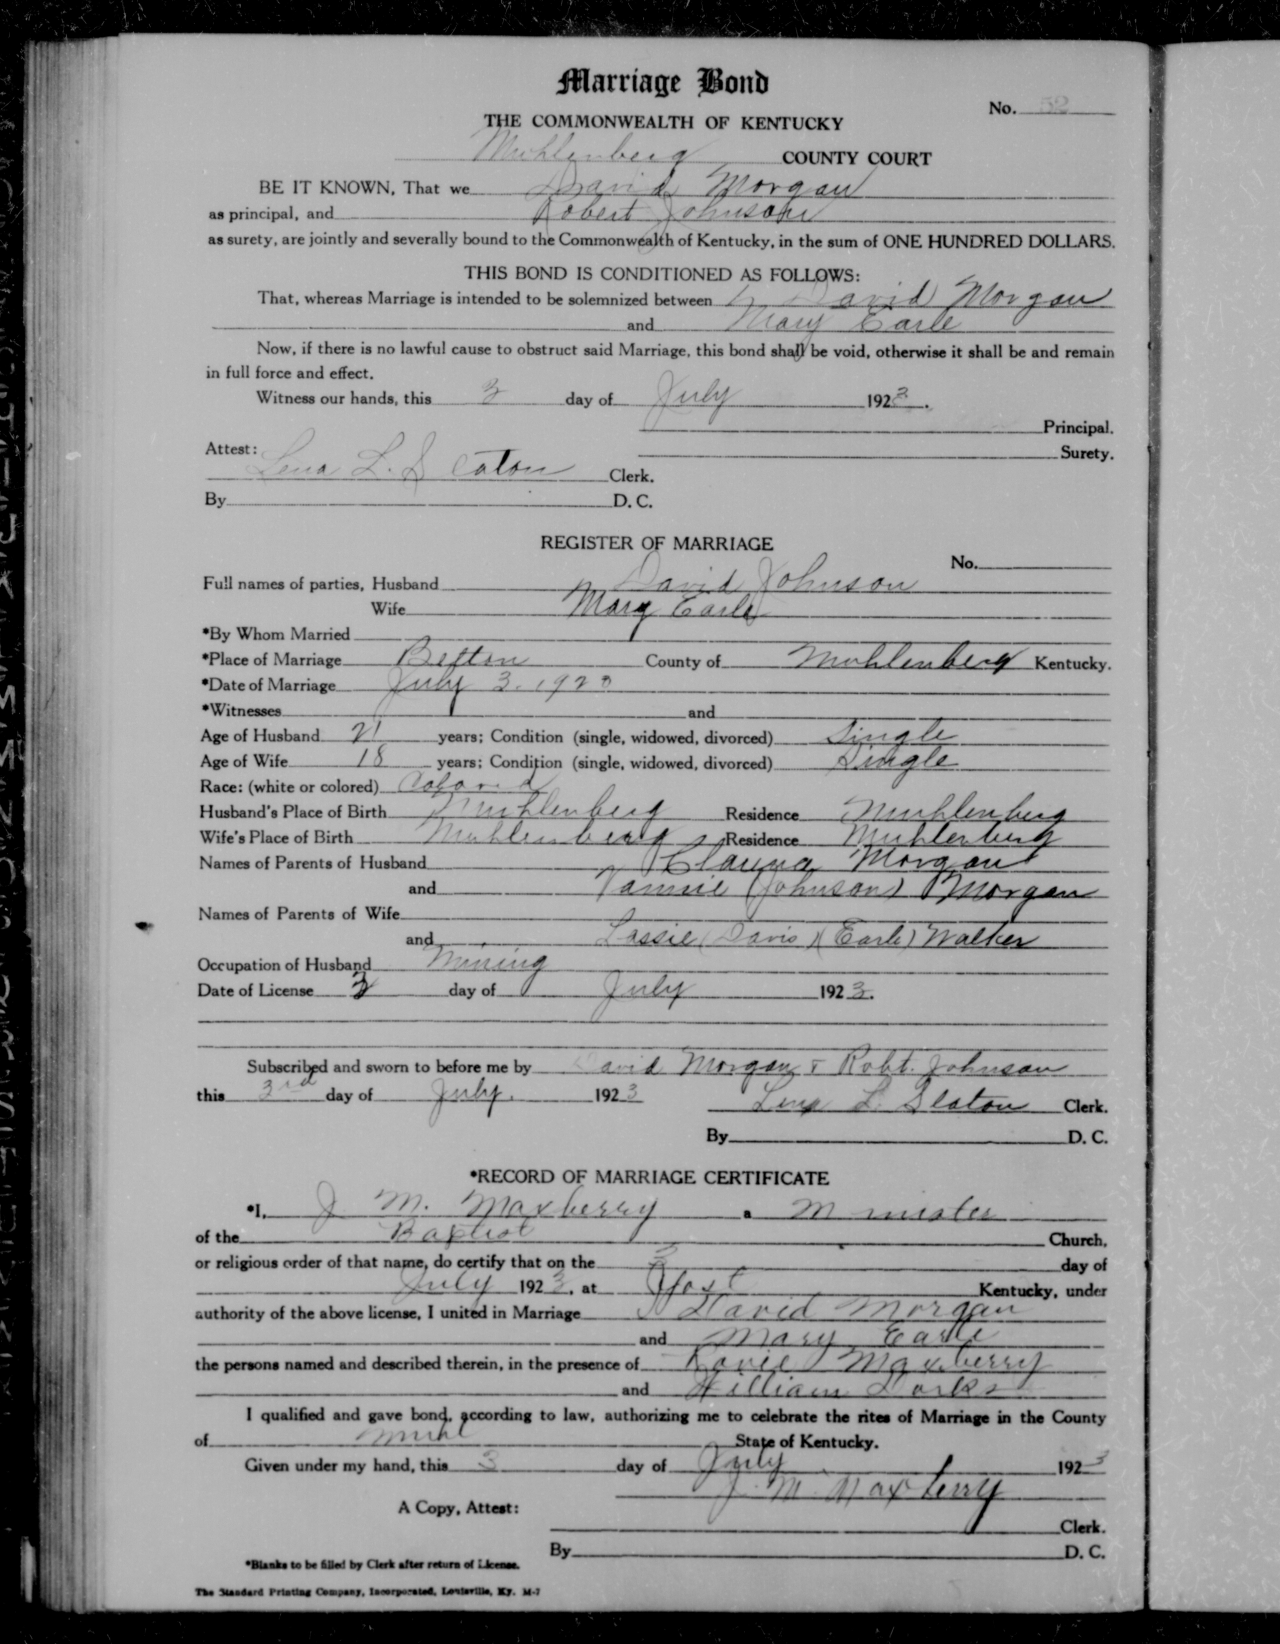 Marriage Bond
No. 52
THE COMMONWEALTH OF KENTUCKY
Muhlenberg COUNTY COURT
BE IT KNOWN, That we David Morgan
as principal, and Robert Johnson
as surety, are jointly and severally bound to the Commonwealth of Kentucky, in the sum of ONE HUNDRED DOLLARS.
THIS BOND IS CONDITIONED AS FOLLOWS:
That, whereas Marriage is intended to be solemnized between David Morgan
and Mary Earle
Now, if there is no lawful cause to obstruct said Marriage, this bond shall be void, otherwise it shall be and remain
in full force and effect.
Witness our hands, this 3 day of July 1923.
Principal.
Attest: Surety.
Lena L. Seaton Clerk.
By D. C.
REGISTER OF MARRIAGE
No.
Full names of parties, Husband David Johnson
Wife Mary Earle
*By Whom Married
*Place of Marriage Belton County of Muhlenberg Kentucky.
*Date of Marriage July 3. 1923
*Witnesses and
Age of Husband 21 years; Condition (single, widowed, divorced) Single
Age of Wife 18 years; Condition (single, widowed, divorced) Single
Race: (white or colored) Colored
Husband's Place of Birth Muhlenberg Residence Muhlenberg
Wife's Place of Birth Muhlenberg Residence Muhlenberg
Names of Parents of Husband Morgan
and (Johnson) Morgan
Names of Parents of Wife
and Lassie (Davis) (Earle) Walker
Occupation of Husband Mining
Date of License 3 day of July 1923.
Subscribed and sworn to before me by David Morgan & Robt. Johnson
this 3rd day of July. 1923
Lena L. Seaton Clerk.
By D. C.
*RECORD OF MARRIAGE CERTIFICATE
*I, J. M. Maxberry a Minister
of the Baptist Church,
or religious order of that name, do certify that on the 3 day of
July 1923, at Kentucky, under
authority of the above license, I united in Marriage David Morgan
and Mary Earle
the persons named and described therein, in the presence of Maxberry
and William
I qualified and gave bond, according to law, authorizing me to celebrate the rites of Marriage in the County
of Muhl State of Kentucky.
Given under my hand, this 3 day of July 1923
J. M. Maxberry
A Copy, Attest:
Clerk.
By D. C.
*Blanks to be filled by Clerk after return of License.
The Standard Printing Company, Incorporated, Louisville, Ky. M-7